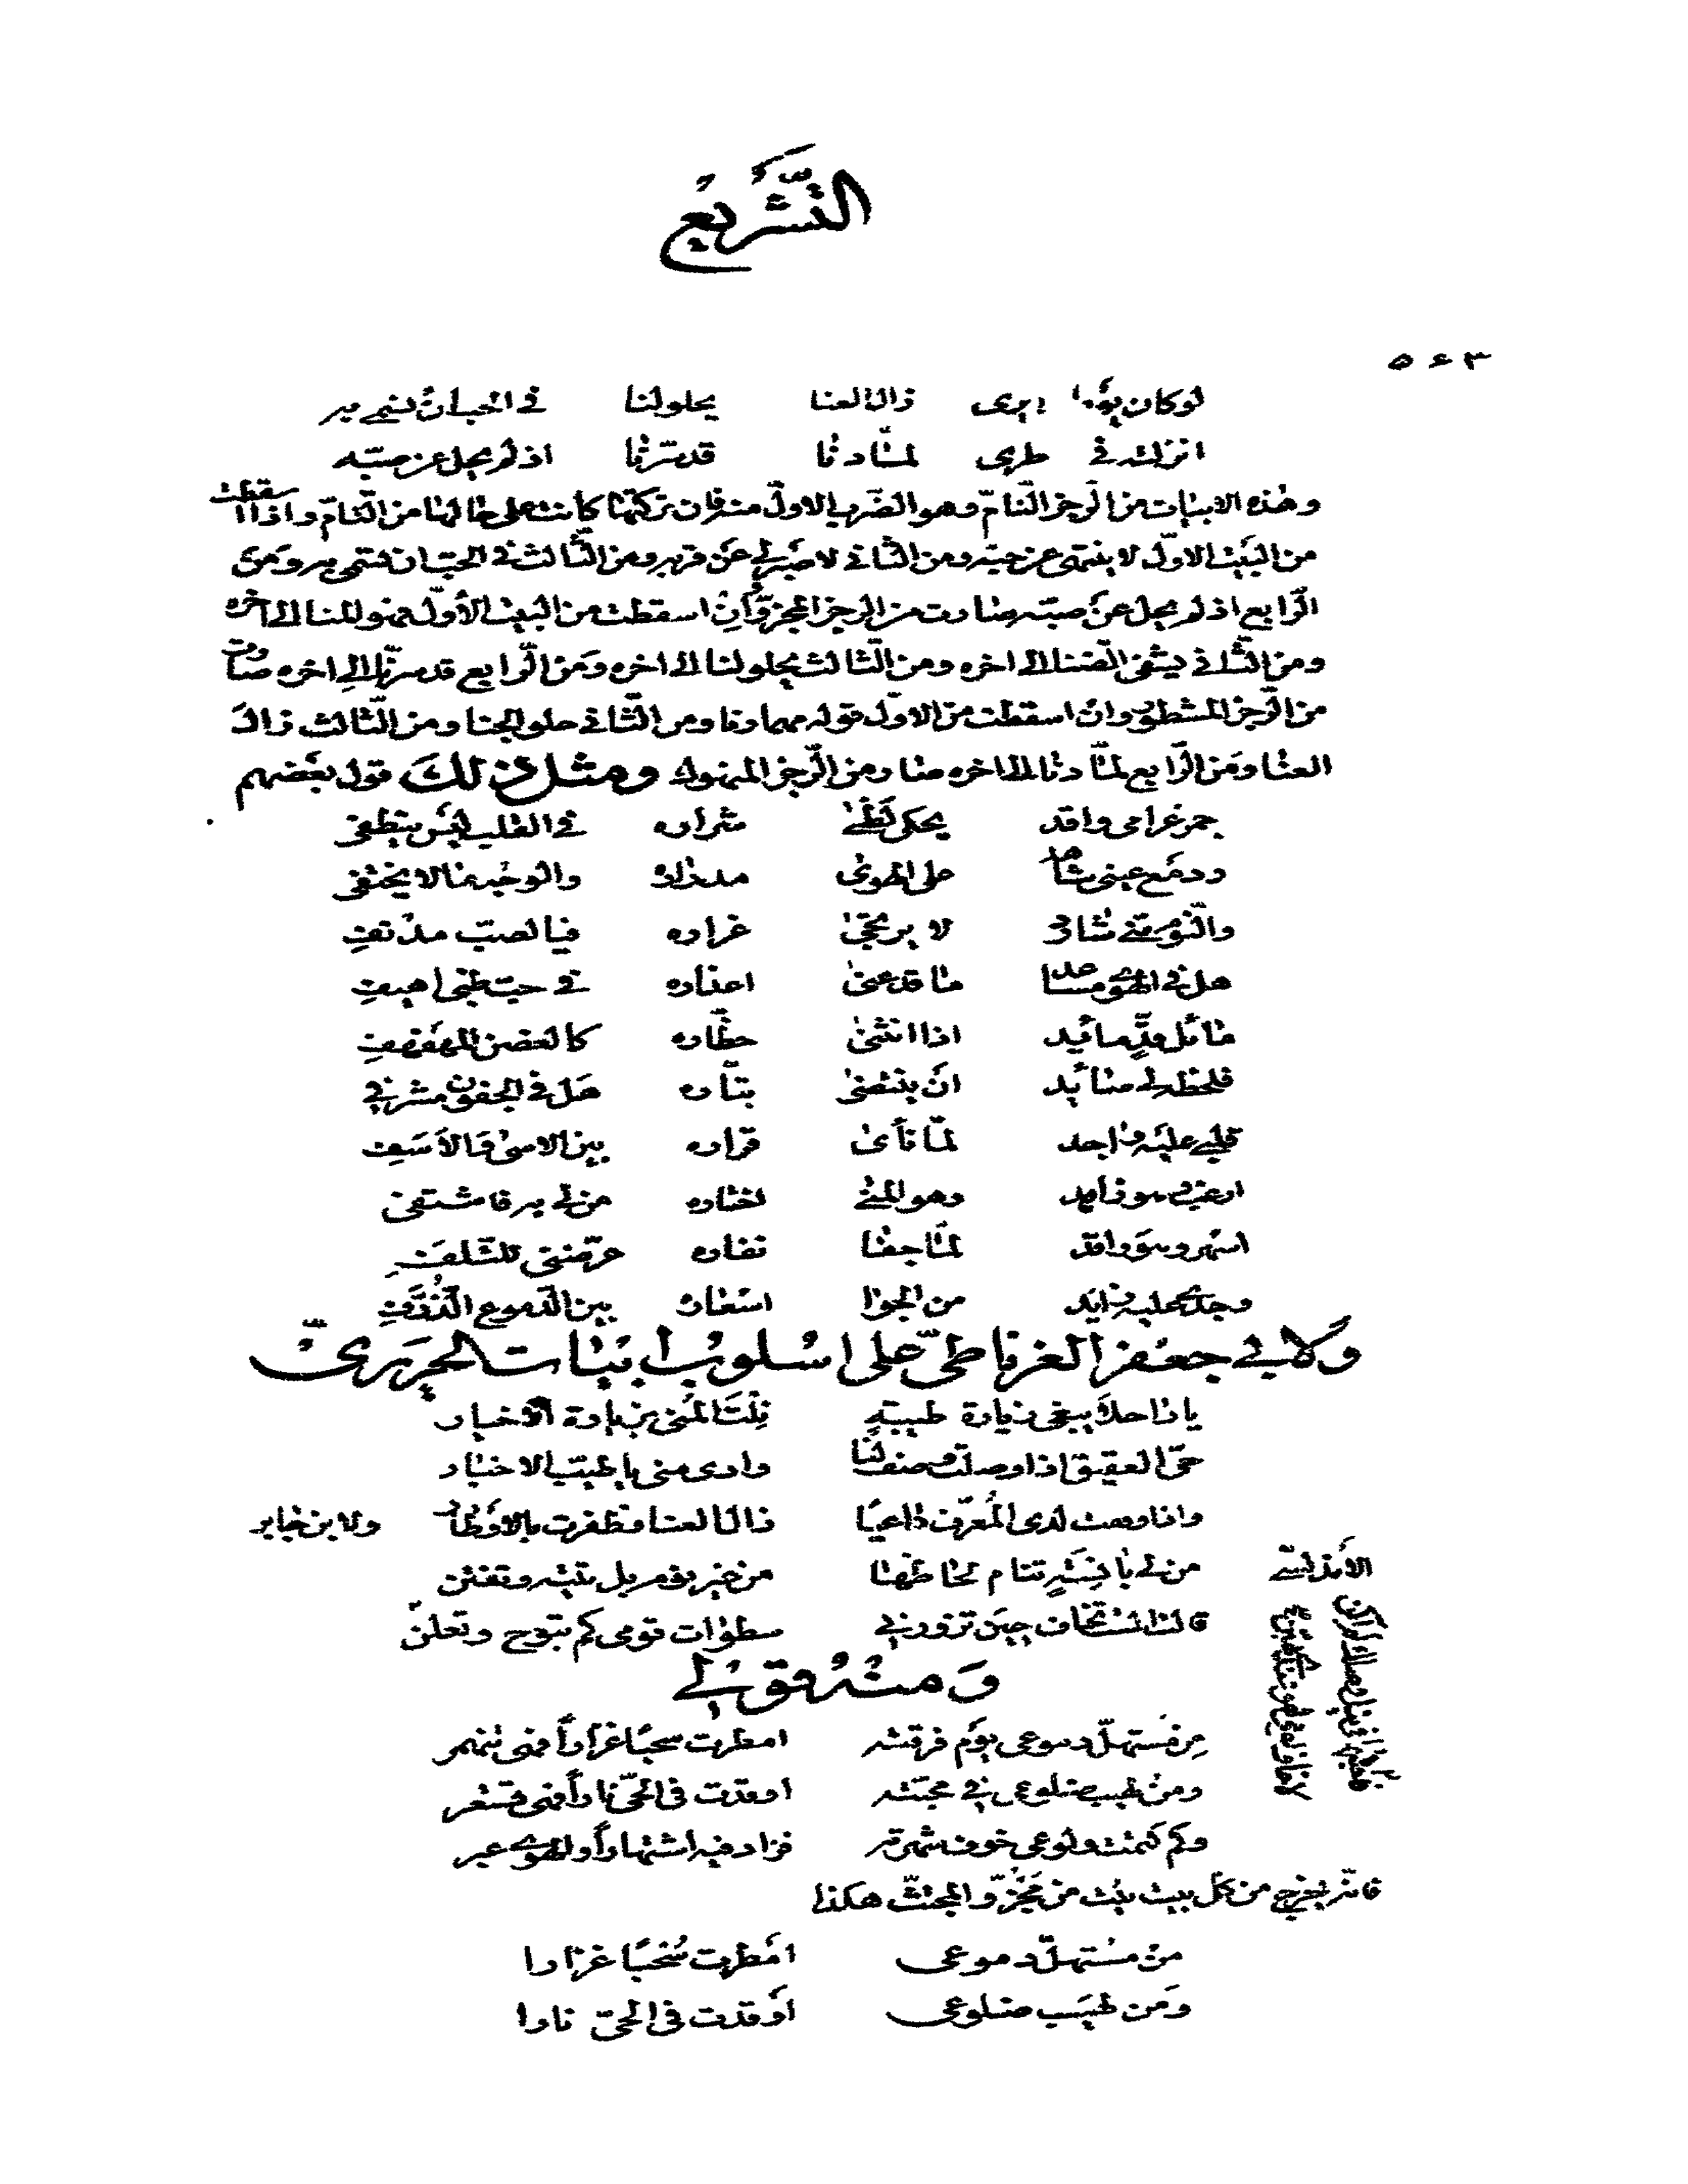 التَّشْرِيعُ
٥٤٣
لو كان يومًا يرى ذاك العنا يحلو لنا في الحب ان نسمى به
انزلته في طرى لمّا دنا قد سرّنا اذ لم يحل عن صبّه
وهذه الابيات من الرجز التامّ وهو الضرب الاولّ منه فان تركتها كانت على حالها من التمامّ واذا اسقطت
من البيت الاوّل لا ينتهى عن حبه ومن الثانى لا صبر لى عن قربه ومن الثالث فى الحبّ ان نسمى به ومن
الرّابع اذ لم يحل عن صبّه صارت من الرجز المجزوّ وان اسقطت من البيت الأوّل نحو المنا الى اخره
ومن الثّانى يشفى الضنا الى اخره ومن الثّالث يحلو لنا الى اخره ومن الرّابع قد سرّنا الى اخره صارت
من الرّجز المشطور وان اسقطت من الاوّل قوله مهما رنا ومن الثّانى حلو الجنا ومن الثّالث ذاك
العنا ومن الرّابع لمّا دنا الى اخره صار من الرّجز المنهوك ومثل ذلك قول بعضهم
جمر غرامى واقد يحكى لظى شراره فى القلب ليس ينطفى
ودمع عينى شاهد على الهوى مدراره والوجد منا لا يختفى
والنّوم عنّى شارد لا يرتجى غراره فيا لصبّ مدنف
هل فى الهوى مساعد ما قد عنى اعذاره فى حبّ ظبى اهيف
مائل قدٍّ مائيد اذا انثنى خطّاره كالغصن المهفهف
فلحظه لى صائيد ان ينتضى بتّاره هل فى الجفون مشرفى
قلبى عليه واجد لمّا نأى قراره بين الاسى والأسف
وهو المنى اختاره من لى به فاشتفى
اسهر وهو راقد لمّا جفا نفاره عرّضنى للتّلف
وجدى عليه زايد من الجوا استعاره بين الدّموع الذّرّف
ولابى جعفر الغرناطىّ على اسلوب ابيات الحريرىّ
يا راحلاً يبغى زيارة طيبةٍ نلت المنى بزيارة الاخيار
حىّ العقيق اذا وصلت وصف لنا وادى منى يا طيّب الاخبار
واذا وقفت لدى المعرّف داعيًا زال العنا وظفرت بالاوطار ولابن جابر
الأندلسى من لى بآنسةٍ تنام لحاظها من غير نوم بل تتيه وتفتن
قالت الست تخاف حين تزورنى سطوات قومى كم تبوح وتعلن
ومنه قولى
من مستهلّ دموعى يوم فرقته امطرت سحبًا غزاراً فهى تنهمر
ومن لهيب ضلوعى فى محبّته اوقدت فى الحىّ ناراً فهى تستعر
وكم كتمت ولوعى خوف شهرته فزاد فيه اشتهاراً والهوى عبر
فانّه يخرج من كلّ بيت بيت من مجزوّ المجتثّ هكذا
من مستهلّ دموعى امطرت سحبًا غزارا
ومن لهيب ضلوعى اوقدت فى الحىّ نارا